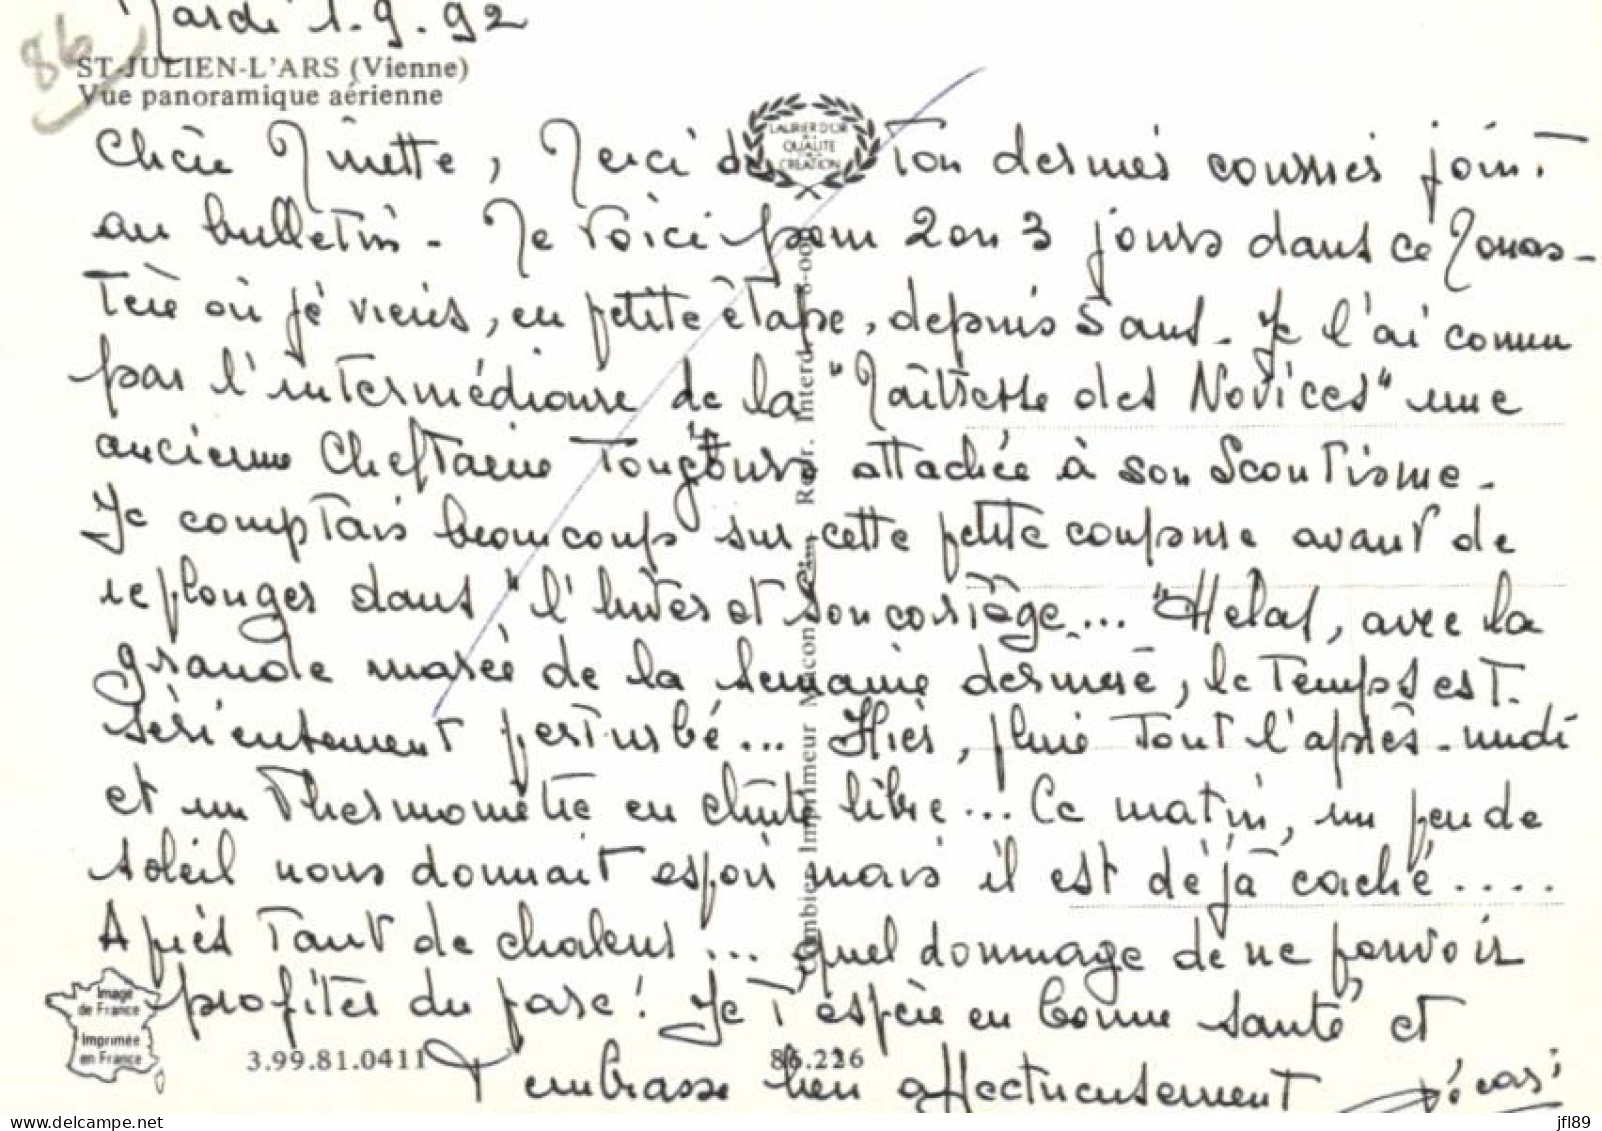 Mardi 1.9.92
86
ST-JULIEN-L'ARS (Vienne)
Vue panoramique aérienne
LAURIER D'OR
QUALITE
CREATION
Chère Minette, Merci de ton dernier courrier joint
au bulletin - Me voici pour 2 ou 3 jours dans ce Monas-
tère où je viens, en petite étape, depuis 5 ans. Je l'ai connu
par l'intermédiaire de la "Maîtresse des Novices" une
ancienne Cheftaine toujours attachée à son Scoutisme -
Je comptais beaucoup sur cette petite coupure avant de
replonger dans "l'hiver et son cortège..." Hélas, avec la
grande marée de la semaine dernière, le temps est
sérieusement perturbé... Hier, pluie tout l'après-midi
et un thermomètre en chute libre... Ce matin, un peu de
soleil nous donnait espoir mais il est déjà caché.....
Après tant de chaleur... quel dommage de ne pouvoir
profiter du parc! Je t'espère en bonne santé et
t'embrasse bien affectueusement
Combier Imprimeur Macon
Repr. Interd.
Image
de France
Imprimée
en France
3.99.81.0411
86.226
www.delcampe.net
jfl89